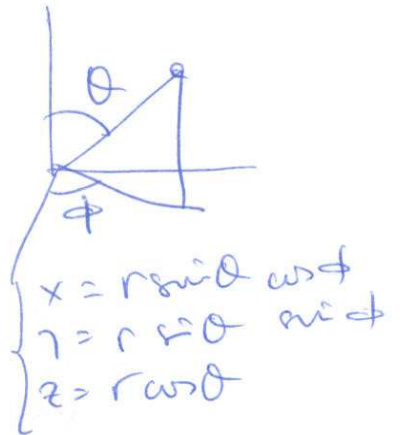 θ
ϕ
x = r sin θ cos ϕ
y = r sin θ sin ϕ
z = r cos θ